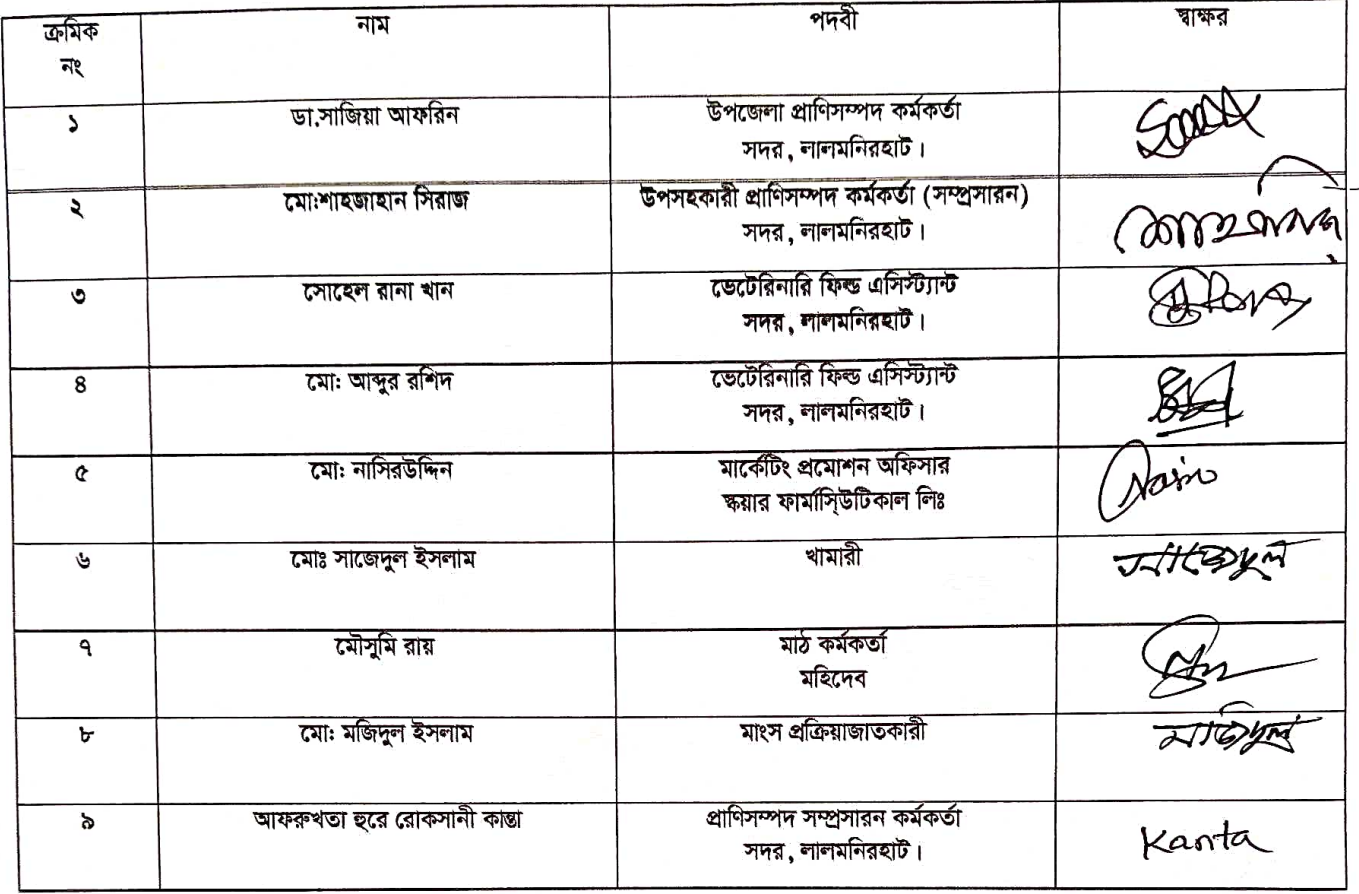 ক্রমিক নং নাম পদবী স্বাক্ষর
১ ডা.সাজিয়া আফরিন উপজেলা প্রাণিসম্পদ কর্মকর্তা
সদর, লালমনিরহাট।
২ মো:শাহজাহান সিরাজ উপসহকারী প্রাণিসম্পদ কর্মকর্তা (সম্প্রসারন)
সদর, লালমনিরহাট।
৩ সোহেল রানা খান ভেটেরিনারি ফিল্ড এসিস্ট্যান্ট
সদর, লালমনিরহাট।
৪ মো: আব্দুর রশিদ ভেটেরিনারি ফিল্ড এসিস্ট্যান্ট
সদর, লালমনিরহাট।
৫ মো: নাসিরউদ্দিন মার্কেটিং প্রমোশন অফিসার
স্কয়ার ফার্মাসিউটিকাল লিঃ
৬ মোঃ সাজেদুল ইসলাম খামারী সাজেদুল
৭ মৌসুমি রায় মাঠ কর্মকর্তা
মহিদেব
৮ মো: মজিদুল ইসলাম মাংস প্রক্রিয়াজাতকারী মজিদুল
৯ আফরুখতা হুরে রোকসানী কান্তা প্রাণিসম্পদ সম্প্রসারন কর্মকর্তা
সদর, লালমনিরহাট। Kanta